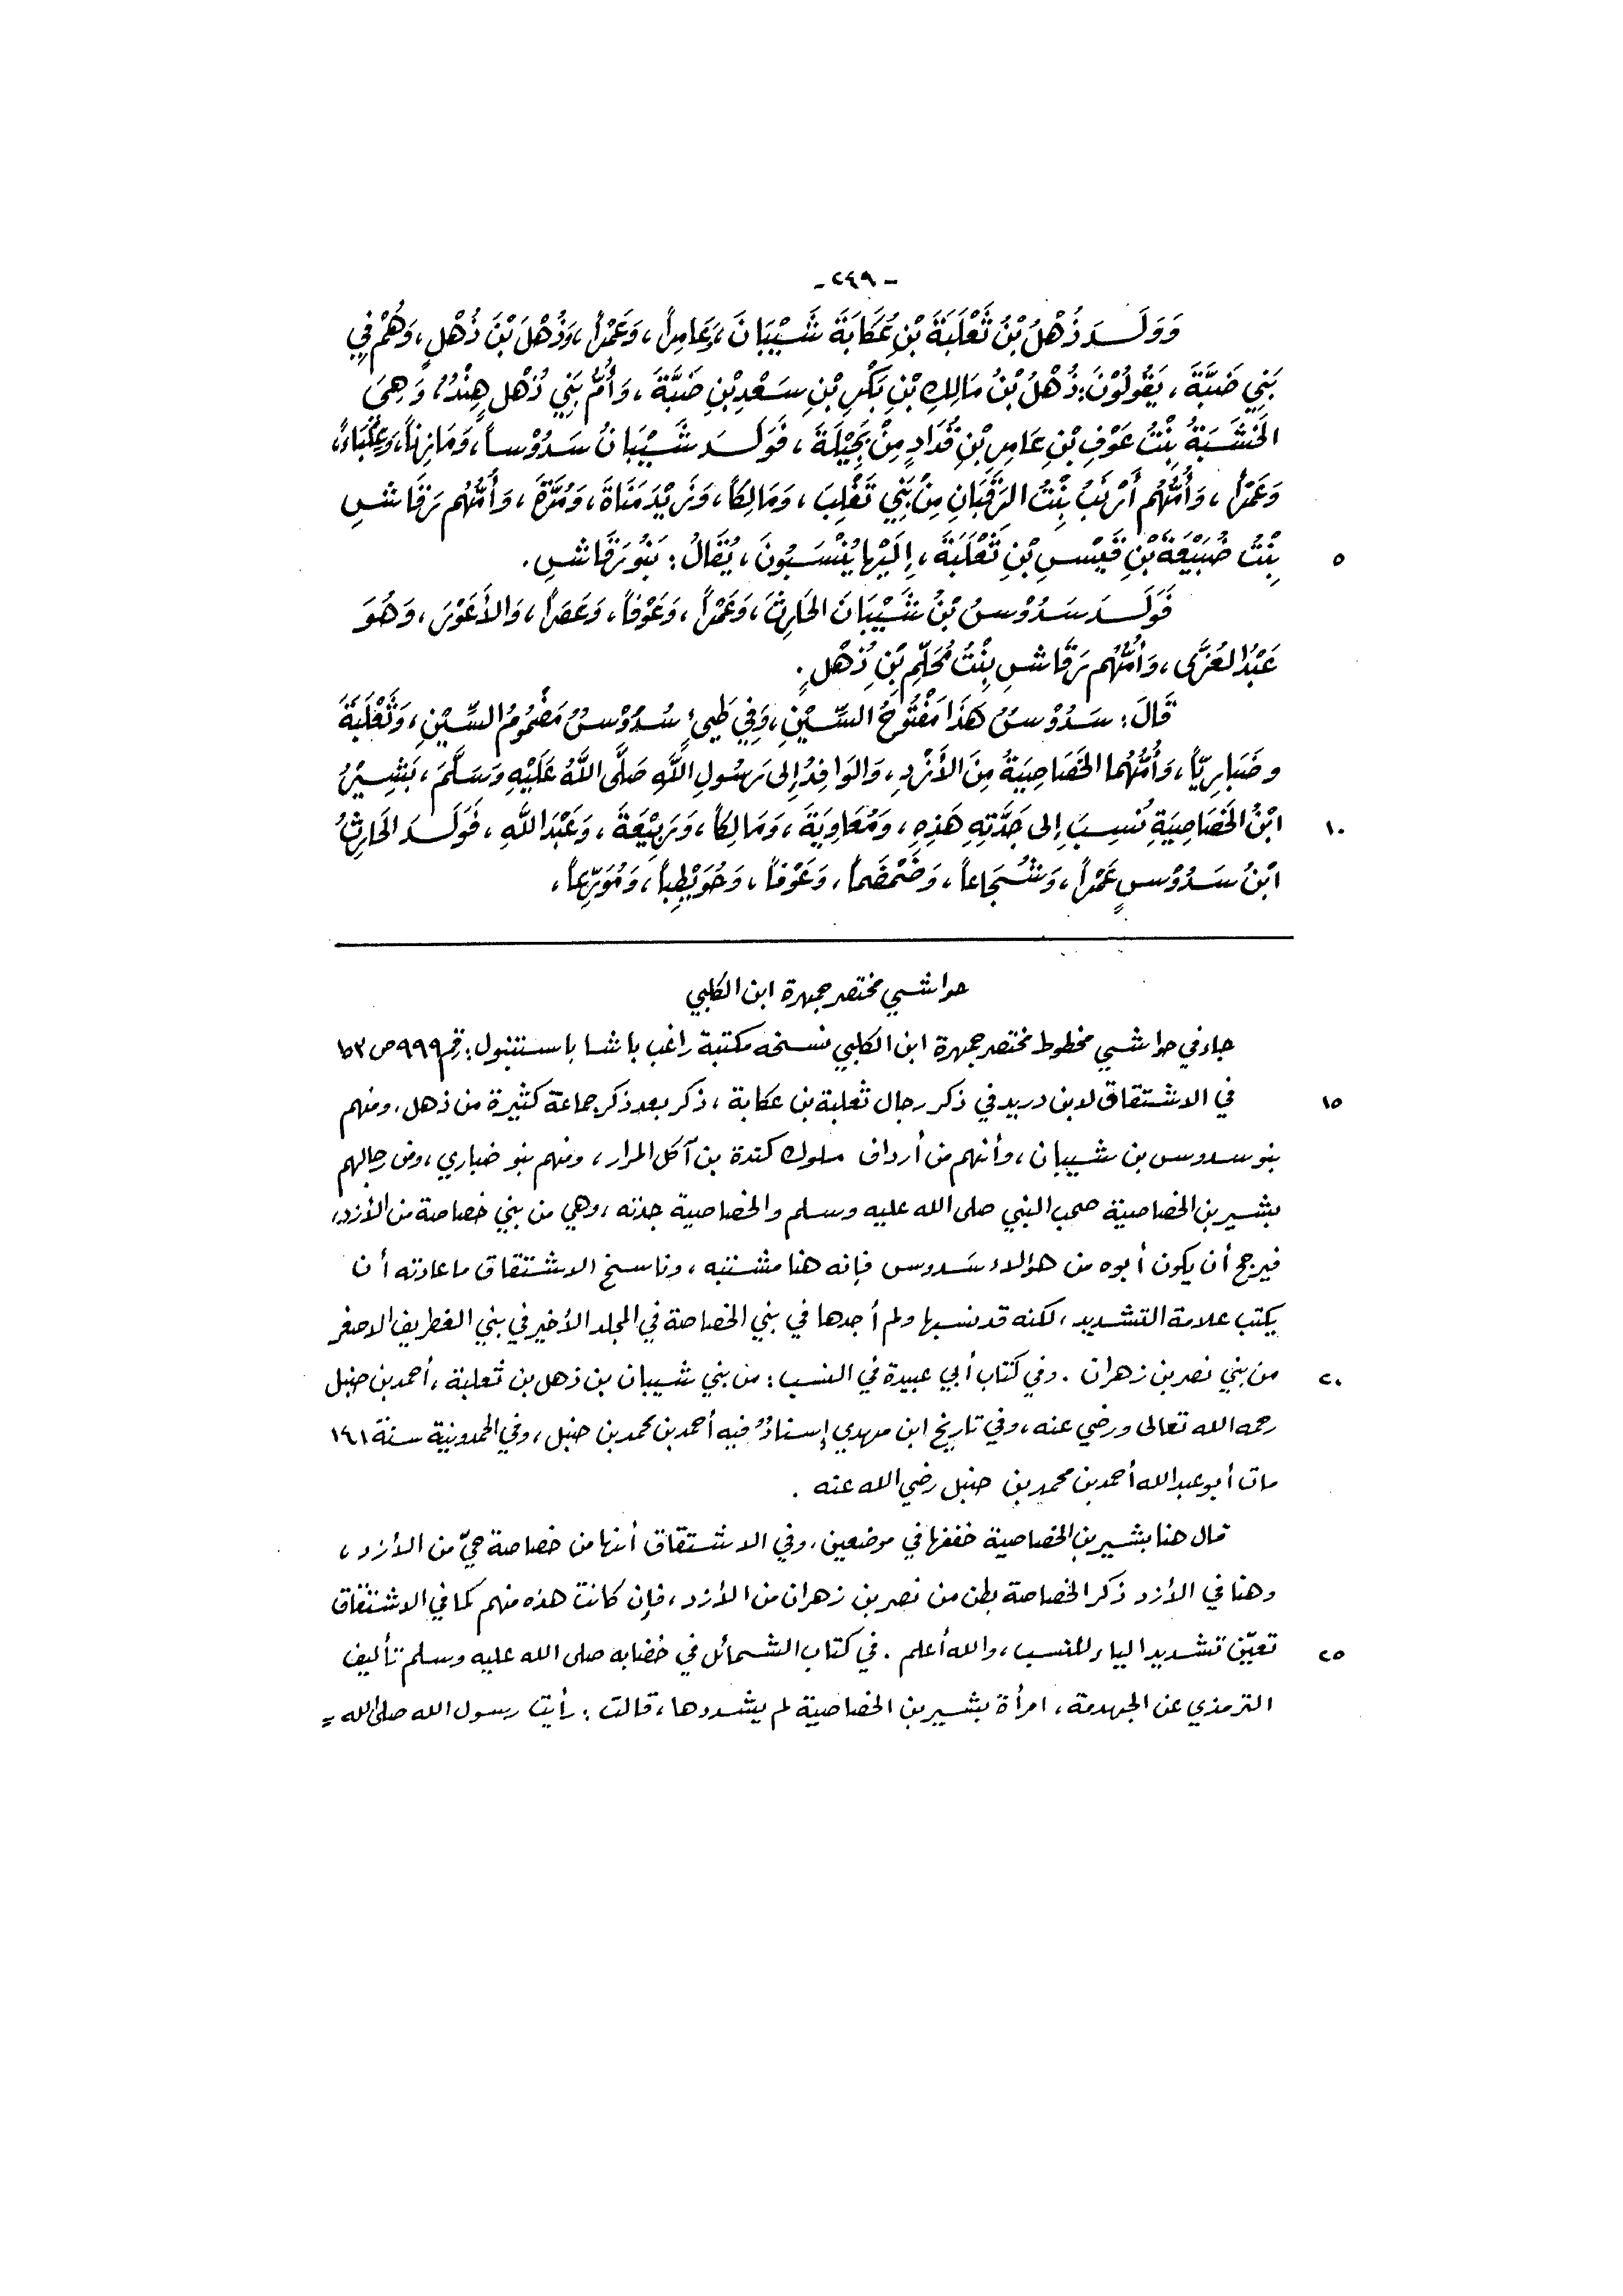 - ٢٤٩ -
وَوَلَدَ ذُهْلُ بْنُ ثَعْلَبَةَ بْنِ عُكَابَةَ شَيْبَانَ، وَعَامِراً، وَعَمْراً، وَذُهْلَ بْنَ ذُهْلٍ، وَهُمْ فِي
بَنِي ضَبَّةَ، يَقُولُوْنَ: ذُهْلُ بْنُ مَالِكِ بْنِ بَكْرِ بْنِ سَعْدِ بْنِ ضَبَّةَ، وَأُمُّ بَنِي ذُهْلٍ هِنْدُ، وَهِيَ
الخَشَبَةُ بِنْتُ عَوْفِ بْنِ عَامِرِ بْنِ قُدَادٍ مِنْ بَجِيْلَةَ، فَوَلَدَ شَيْبَانُ سَدُوْساً، وَمَازِناً، وَعِلْبَاءَ،
وَعَمْراً، وَأُمُّهُم أَرْنَبُ بِنْتُ الرَقَبَانِ مِنْ بَنِي تَغْلِبَ، وَمَالِكاً، وَزَيْدَ مَنَاةَ، وَمُرَّةَ، وَأُمُّهُم رَقَاشِ
٥ بِنْتُ ضُبَيْعَةَ بْنِ قَيْسِ بْنِ ثَعْلَبَةَ، إِلَيْهَا يُنْسَبُونَ، يُقَالُ: بَنُو رَقَاشِ.
فَوَلَدَ سَدُوْسُ بْنُ شَيْبَانَ الحَارِثَ، وَعَمْراً، وَعَوْفاً، وَعَصَراً، وَالأَعْوَرَ، وَهُوَ
عَبْدُ العُزَّى، وَأُمُّهُم رَقَاشِ بِنْتُ مُحَلِّمِ بْنِ ذُهْلٍ.
قَالَ: سَدُوْسُ هَذَا مَفْتُوحُ السِّيْنِ، وَفِي طَيِّئٍ سُدُوْسُ مَضْمُومُ السِّيْنِ، وَثَعْلَبَةَ
وضَبَارِيّاً، وَأُمُّهُمَا الخَصَاصِيَةُ مِنَ الأَزْدِ، وَالوَافِدُ إِلى رَسُولِ اللَّهِ صَلَّى اللَّهُ عَلَيْهِ وَسَلَّمَ، بَشِيْرُ
١٠ ابْنُ الخَصَاصِيَةِ نُسِبَ إِلى جَدَّتِهِ هَذِهِ، وَمُعَاوِيَةَ، وَمَالِكاً، وَرَبِيْعَةَ، وَعَبْدَ اللَّهِ، فَوَلَدَ الحَارِثُ
ابْنُ سَدُوْسٍ عَمْراً، وَشُجَاعاً، وَضَمْضَماً، وَعَوْفاً، وَحُوَيْطِباً، وَمُوَرِّعاً،
حواشي مختصر جمهرة ابن الكلبي
جاء في حواشي مخطوط مختصر جمهرة ابن الكلبي نسخة مكتبة راغب باشا باستنبول: رقم ٩٩٩ ص
١٥ في الاشتقاق لابن دريد في ذكر رجال ثعلبة بن عكابة، ذكر بعد ذكر جماعة كثيرة من ذهل، ومنهم
بنو سدوس بن شيبان، وأنهم من أرداف ملوك كندة بن آكل المرار، ومنهم بنو ضباري، ومن رجالهم
بشير بن الخصاصية صحب النبي صلى الله عليه وسلم والخصاصية جدته، وهي من بني خصاصة من الأزد،
فيرجح أن يكون أبوه من هؤلاء سَدوس فإنه هنا مشتبه، وناسخ الاشتقاق ما عادته أن
يكتب علامة التشديد، لكنه قد نسبها ولم أجدها في بني الخصاصة في المجلد الأخير في بني الغطريف الاصغر
٢٠ من بني نصر بن زهران. وفي كتاب أبي عبيدة في النسب: من بني شيبان بن ذهل بن ثعلبة، أحمد بن حنبل
رحمه الله تعالى ورضي عنه، وفي تاريخ ابن مهدي إسنادٌ فيه أحمد بن محمد بن حنبل، وفي الحمدونية سنة ١٤١
مات أبو عبد الله أحمد بن محمد بن حنبل رضي الله عنه.
قال هنا بشير بن الخصاصية خففها في موضعين، وفي الاشتقاق أنها من خصاصة حيّ من الأزد،
وهنا في الأزد ذكر الخصاصة بطن من نصر بن زهران من الأزد، فإن كانت هذه منهم كما في الاشتقاق
٢٥ تعيّن تشديد الياء للنسب، والله أعلم. في كتاب الشمائل في خُضابه صلى الله عليه وسلم تأليف
الترمذي عن الجهدمة، امرأة بشير بن الخصاصية لم يشددها، قالت: رأيت رسول الله صلى الله =